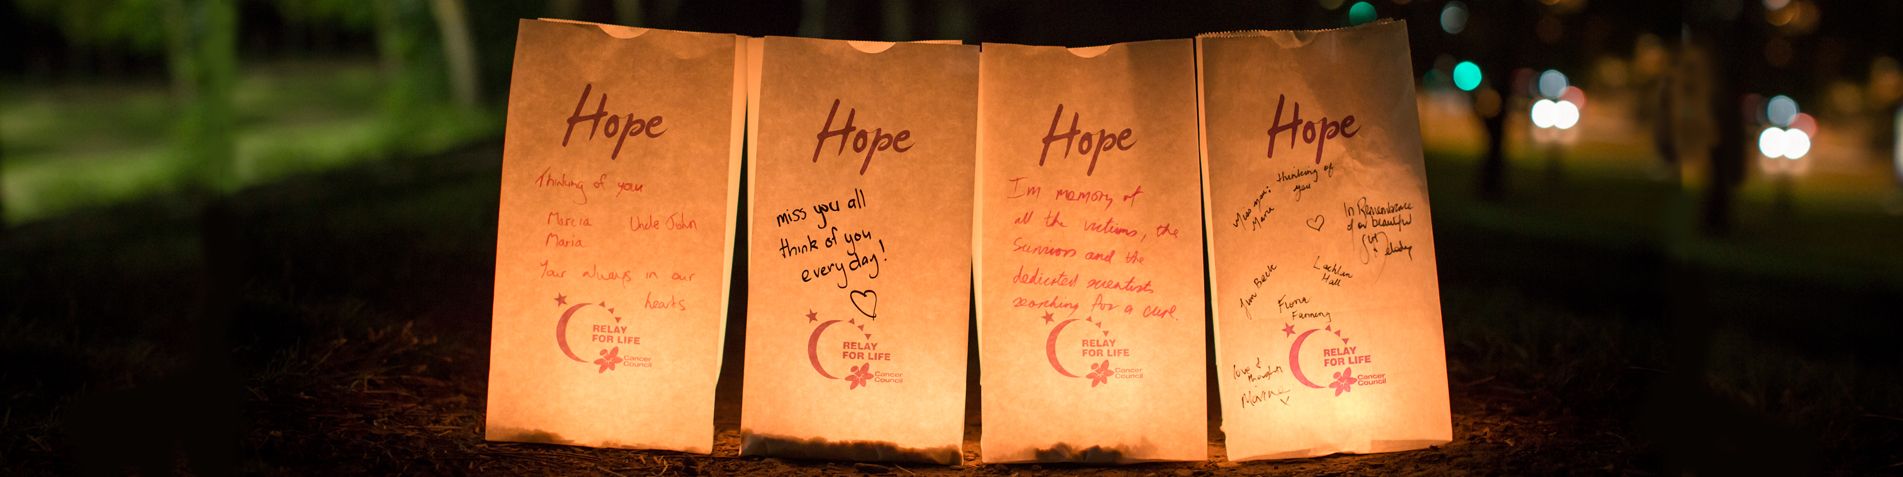 Hope
Thinking of you
Marcia Uncle John
Maria
Your always in our
hearts
RELAY
FOR LIFE
Cancer
Council
Hope
miss you all
think of you
every day!
RELAY
FOR LIFE
Cancer
Council
Hope
Im memory of
all the victims, the
Survivors and the
dedicated scientists
searching for a cure.
RELAY
FOR LIFE
Cancer
Council
Hope
thinking of
you
Maria
In Remembrance
of our beautiful
Lachlan
Hall
Jim Beck
Fiona
Fanning
RELAY
FOR LIFE
Cancer
Council
love &
thoughts